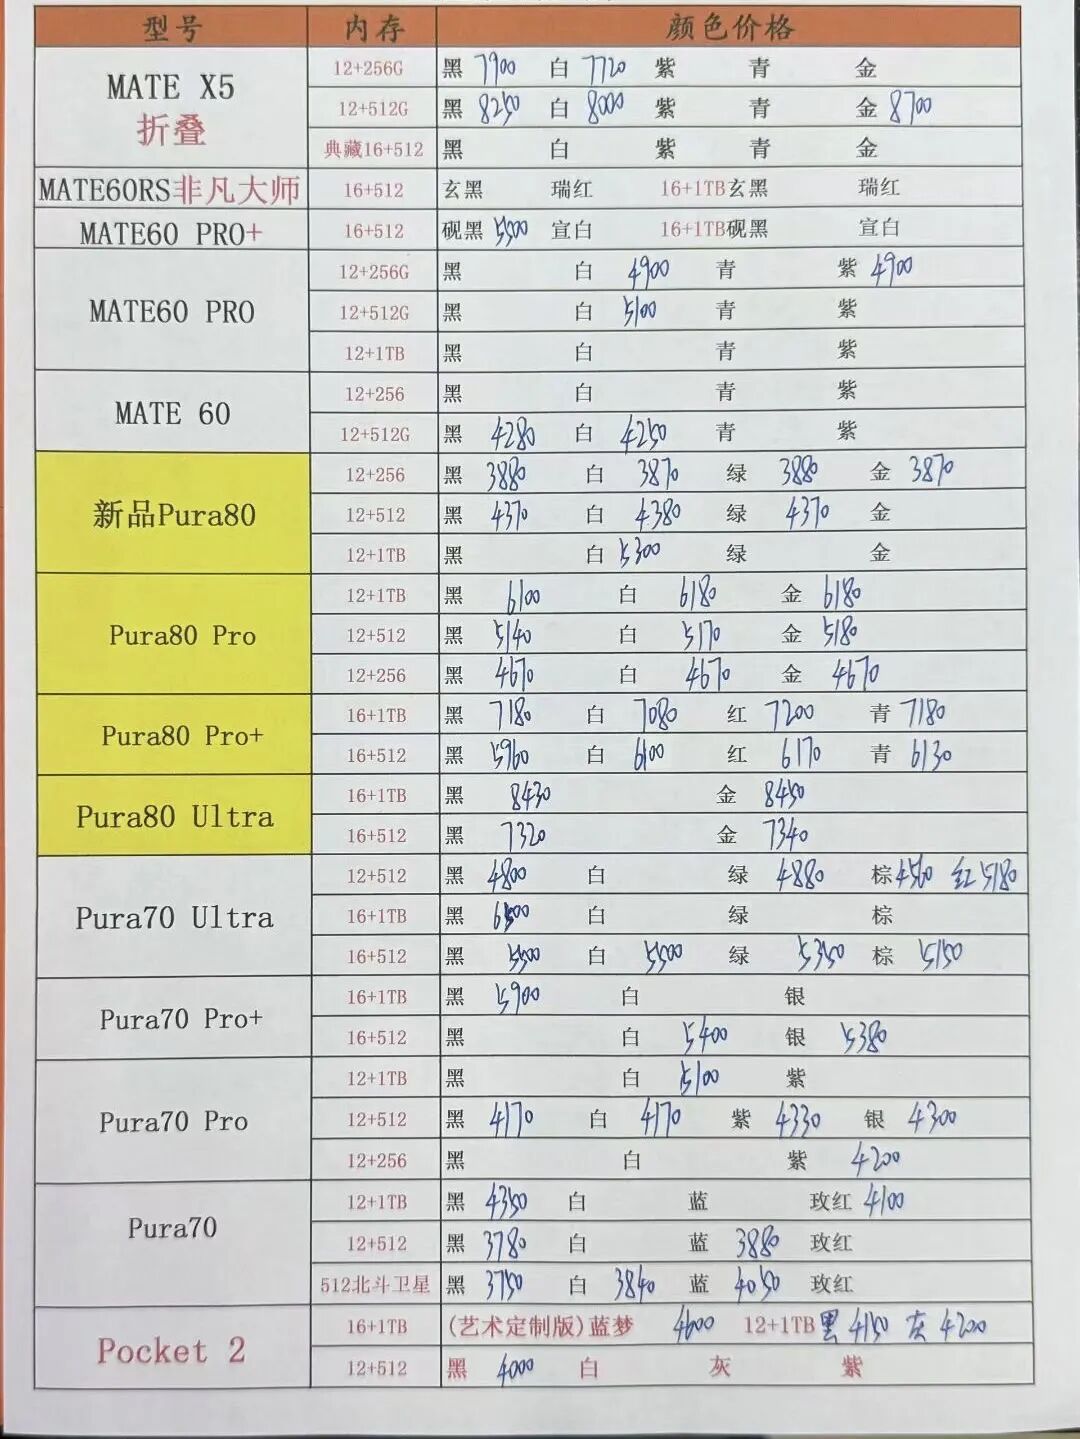 型号 内存 颜色价格
MATE X5 折叠 12+256G 黑 7900 白 7720 紫 青 金
12+512G 黑 8250 白 8000 紫 青 金 8700
典藏16+512 黑 白 紫 青 金
MATE60RS非凡大师 16+512 玄黑 瑞红 16+1TB玄黑 瑞红
MATE60 PRO+ 16+512 砚黑 5500 宣白 16+1TB砚黑 宣白
MATE60 PRO 12+256G 黑 白 4900 青 紫 4900
12+512G 黑 白 5100 青 紫
12+1TB 黑 白 青 紫
MATE 60 12+256 黑 白 青 紫
12+512G 黑 4280 白 4250 青 紫
新品Pura80 12+256 黑 3880 白 3870 绿 3880 金 3870
12+512 黑 4370 白 4380 绿 4370 金
12+1TB 黑 白 5300 绿 金
Pura80 Pro 12+1TB 黑 6100 白 6180 金 6180
12+512 黑 5140 白 5170 金 5180
12+256 黑 4670 白 4670 金 4670
Pura80 Pro+ 16+1TB 黑 7180 白 7080 红 7200 青 7180
16+512 黑 5960 白 6100 红 6170 青 6130
Pura80 Ultra 16+1TB 黑 8430 金 8450
16+512 黑 7320 金 7340
Pura70 Ultra 12+512 黑 4800 白 绿 4880 棕 4560 红 5180
16+1TB 黑 白 绿 棕
16+512 黑 5500 白 5500 绿 5350 棕 5150
Pura70 Pro+ 16+1TB 黑 5900 白 银
16+512 黑 白 5400 银 5380
Pura70 Pro 12+1TB 黑 白 5100 紫
12+512 黑 4170 白 4170 紫 4330 银 4300
12+256 黑 白 紫 4200
Pura70 12+1TB 黑 4350 白 蓝 玫红 4100
12+512 黑 3780 白 蓝 3880 玫红
512北斗卫星 黑 3750 白 3840 蓝 4050 玫红
Pocket 2 16+1TB (艺术定制版)蓝梦 4600 12+1TB 黑 4150 灰 4200
12+512 黑 4000 白 灰 紫